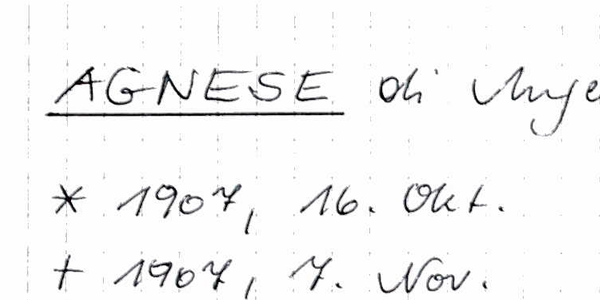 AGNESE di Ange
* 1907, 16. Okt.
† 1907, 7. Nov.